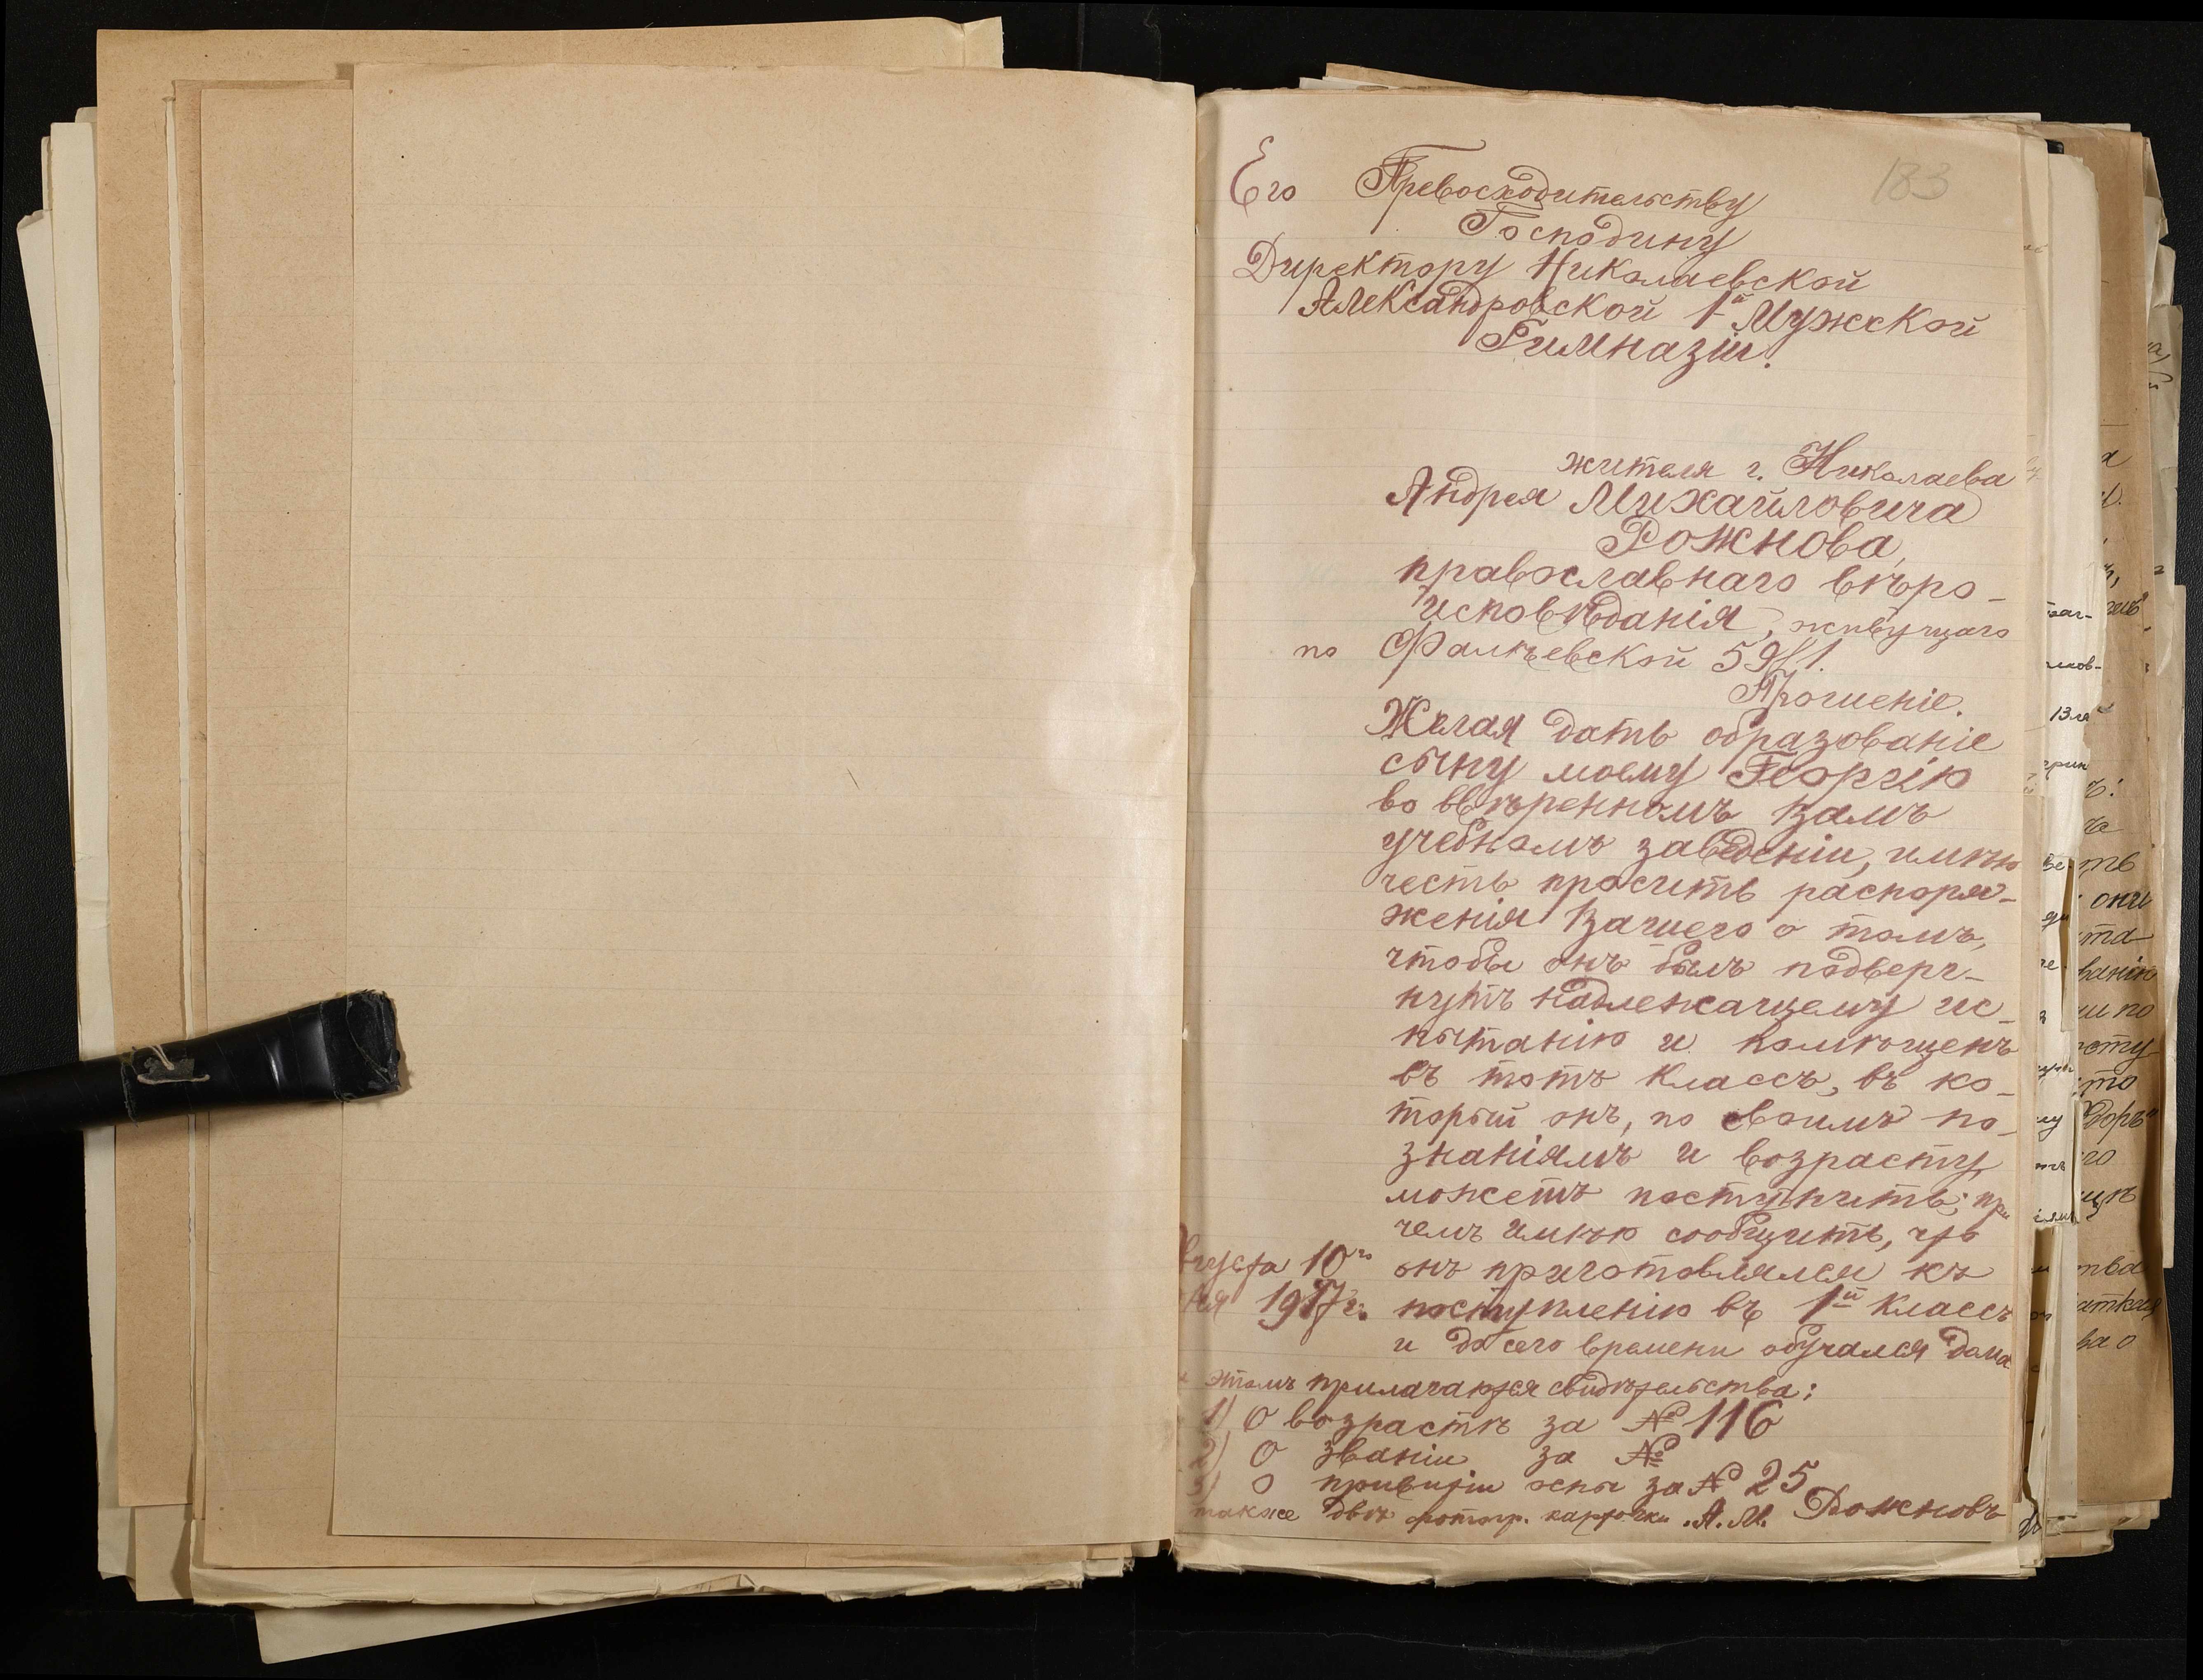 183
Его Превосходительству
Господину
Директору Николаевской
Александровской 1й Мужской
Гимназіи.
жителя г. Николаева
Андрея Михайловича
Рожнова,
православнаго вѣро-
исповѣданія, живущаго
по Фалѣевской 59/1.
Прошеніе.
Желая дать образованіе
сыну моему Георгію
во ввѣренномъ Вамъ
учебномъ заведеніи, имѣю
честь просить распоря-
женія Вашего о томъ,
чтобы онъ былъ подверг-
нутъ надлежащему ис-
пытанію и помѣщенъ
въ тотъ классъ, въ ко-
торый онъ, по своимъ по-
знаніямъ и возрасту,
можетъ поступить; при
чемъ имѣю сообщить, что
онъ приготовлялся къ
поступленію въ 1й классъ
и до сего времени обучался дома
вгуста 10го
ня 1917 г.
этомъ прилагаются свидѣтельства:
1) О возрастѣ за № 116
2) О званіи за №
3) О привитіи оспы за № 25
также двѣ фотогр. карточки. А. М. Рожновъ